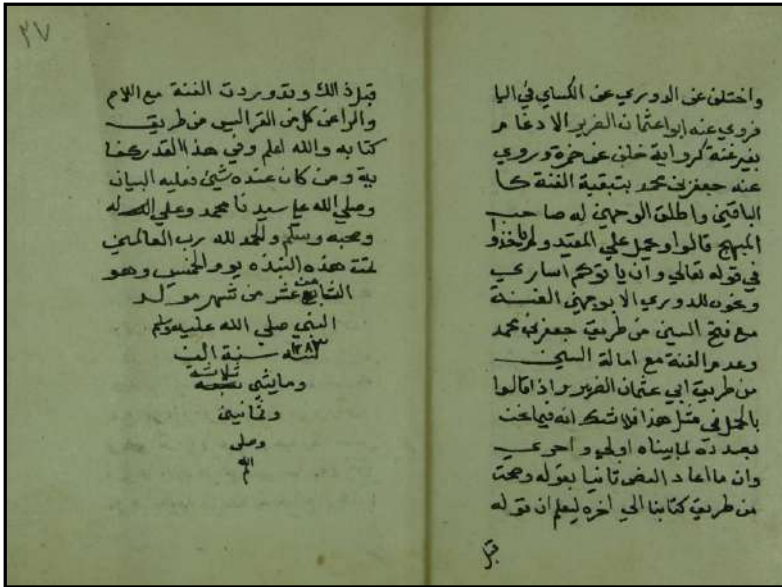 واختلف عن الدوري عن الكساي في اليا
فروي عنه ابوا عثمان الضرير الادغام
بغير غنة كرواية خلف عن حمزة وروي
عنه جعفر بن محمد بتبقية الغنة كا
الباقين واطلق الوجهين له صاحب
المبهج قالوا وحمل علي المقيد ولم ياخذوا
في قوله تعالي وان ياتوكم اساري
ونحوه للدوري الا بوجهين الغنة
مع فتح السين من طريق جعفر بن محمد
وعدم الغنة مع امالة السين
من طريق ابي عثمان الضرير واذا قالوا
بالحمل في مثل هذا فلا شك انه فيما نحن
بصدده لما بيناه اولي واحري
وان ما اعاد البعض ثانيا بقوله وصحت
من طريق كتابنا الي اخره ليعلم ان قوله
قبل
٢٧
قبل ذالك وقد وردت الغنة مع اللام
والرا عن كل من القرا ليس من طريق
كتابه والله اعلم وفي هذا القدر كفا
ية ومن كان عنده شيئ فعليه البيان
وصلي الله علي سيدنا محمد وعلي اله
وصحبه وسلم والحمد لله رب العالمين
تمتة هذه النبذه يوم الخميس وهو
عشر من شهر مولد
النبي صلي الله عليه وسلم
١٢٨٣ سنة الف
ومايتي ثلاثة
وثمانين
وصلى
الله